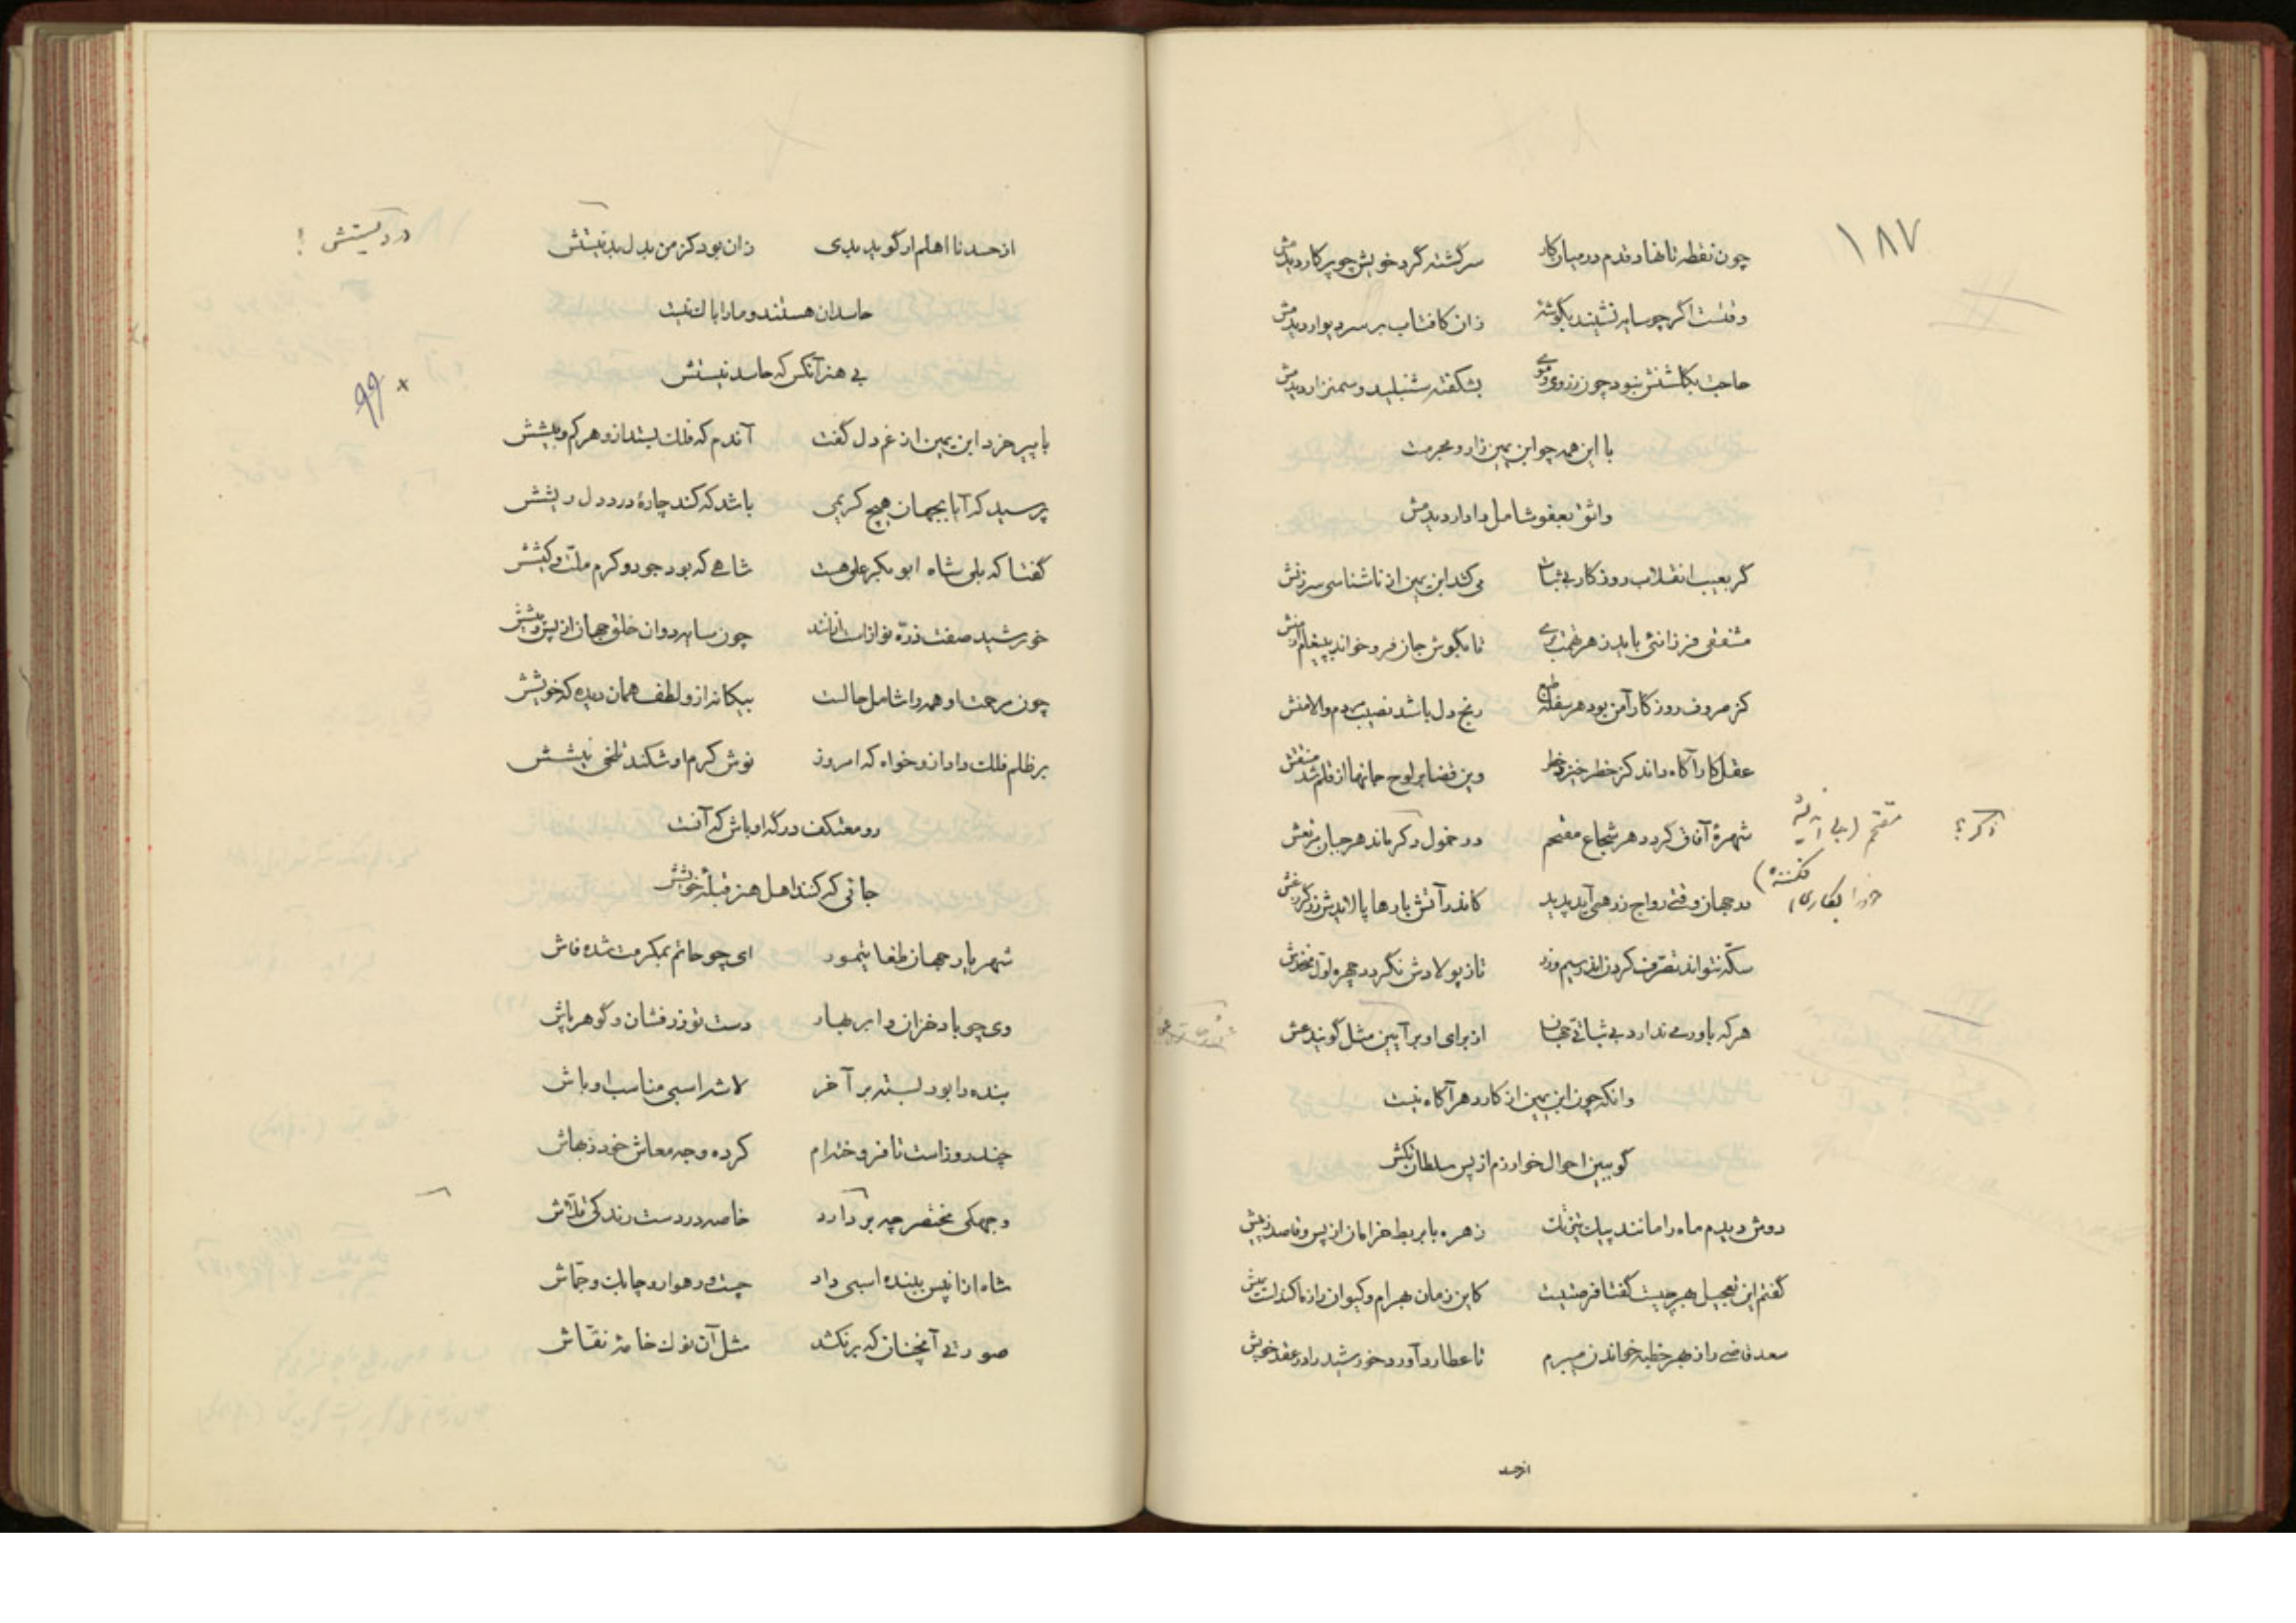 ۱۸۷
چون نقطه تا نهاد قدم در میان کار سرگشته گرد خویش چو پرگار دیدمش
وقتست اگر چو سایه نشیند بگوشهٔ زان کافتاب بر سر دیوار دیدمش
حاجت بگلشنش نبود چون ز روی و موی بشکفته شنبلید و سمنزار دیدمش
با این همه چو ابن یمین زار و مجرمست
واثق بعفو شامل دادار دیدمش
گر بعیب انقلاب روزگار بی ثبات می کند ابن یمین از ناشناسی سرزنش
مشفقی فرزانئی باید ز هر تهمت بری تا بگوش جان فرو خواند پیغام منش
کز صروف روزگار آمن بود هر سفلهٔ رنج دل باشد نصیب مردم والامنش
عقل کارآگاه داند کز خطر خیزد خطر وین قضا بر لوح جانها از قلم شد منتقش
شهرهٔ آفاق گردد هر شجاع مقتحم در خمول دگر ماند هر جبان مرتعش
مقتحم (بی اندیشه
خود را بکاری افکننده)
ذکر؟
در جهان وقتی رواج زر همی آید پدید کاندر آتش بارها پالاید زرگر
سکه نتواند تصرف کردن اندر سیم و زر تا ز پولادش نگردد چهره اول
هر که باور می ندارد بی ثباتی جهان از برای او بر آیین مثل گویند
وانکه چون ابن یمین از کار دهر آگاه نیست
گو ببین احوال خوارزم از پس سلطان تکش
دوش دیدم ماه را مانند پیک زهره با بربط خرامان از پس و قاصد ز پیش
گفتم این تعجیل بهر چیست گفتا فرصتیست کاین زمان بهرام و کیوان را
سعد قاضی را ز بهر خطبه خواندن میبرم تا عطارد آورد خورشید را در عقد خویش
از حسد
از حسد نا اهلم ار گوید بدی زان بود کز من بدل بد نیستش
در دنیستش !
حاسدان هستند و ما را باک نیست
بی هنر آنکس که حاسد نیستش
۹۹ ×
با پیر خرد ابن یمین از غم دل گفت آندم که فلک بستد ازو هر کم و بیشش
پرسید که آیا بجهان هیچ کریمی باشد که کند چارهٔ درد دل ریشش
گفتا که بلی شاه ابو بکر علی هست شاهی که بود جود و کرم ملّت و کیشش
خورشید صفت ذرّه نوازست ازانند چون سایه روان خلق جهان از پس و پیشش
چون مرحمت او همه را شامل حالست بیگانه ازو لطف همان دیده که خویشش
بر ظلم فلک داد ازو خواه که امروز نوش کرم او شکند تلخی نیشش
رو معتکف درگه او باش که آنست
جائی که کنند اهل هنر قبلهٔ خویشش
شهریار جهان طغایتمور ای چو حاتم بمکرمت شده فاش
وی چو باد خزان و ابر بهار دست تو زرفشان و گوهر پاش
بنده را بود بسته بر آخر لاشه اسبی مناسب اوباش
چند روز است تا فروخته‌ام کرده وجه معاش خود ز بهاش
وجهکی مختصر چه بر دارد خاصه در دست رندکی قلّاش
شاه ازان پس ببنده اسبی داد چست و رهوار و چابک و جمّاش
صورتی آنچنان که برنکشد مثل آن نوک خامهٔ نقّاش